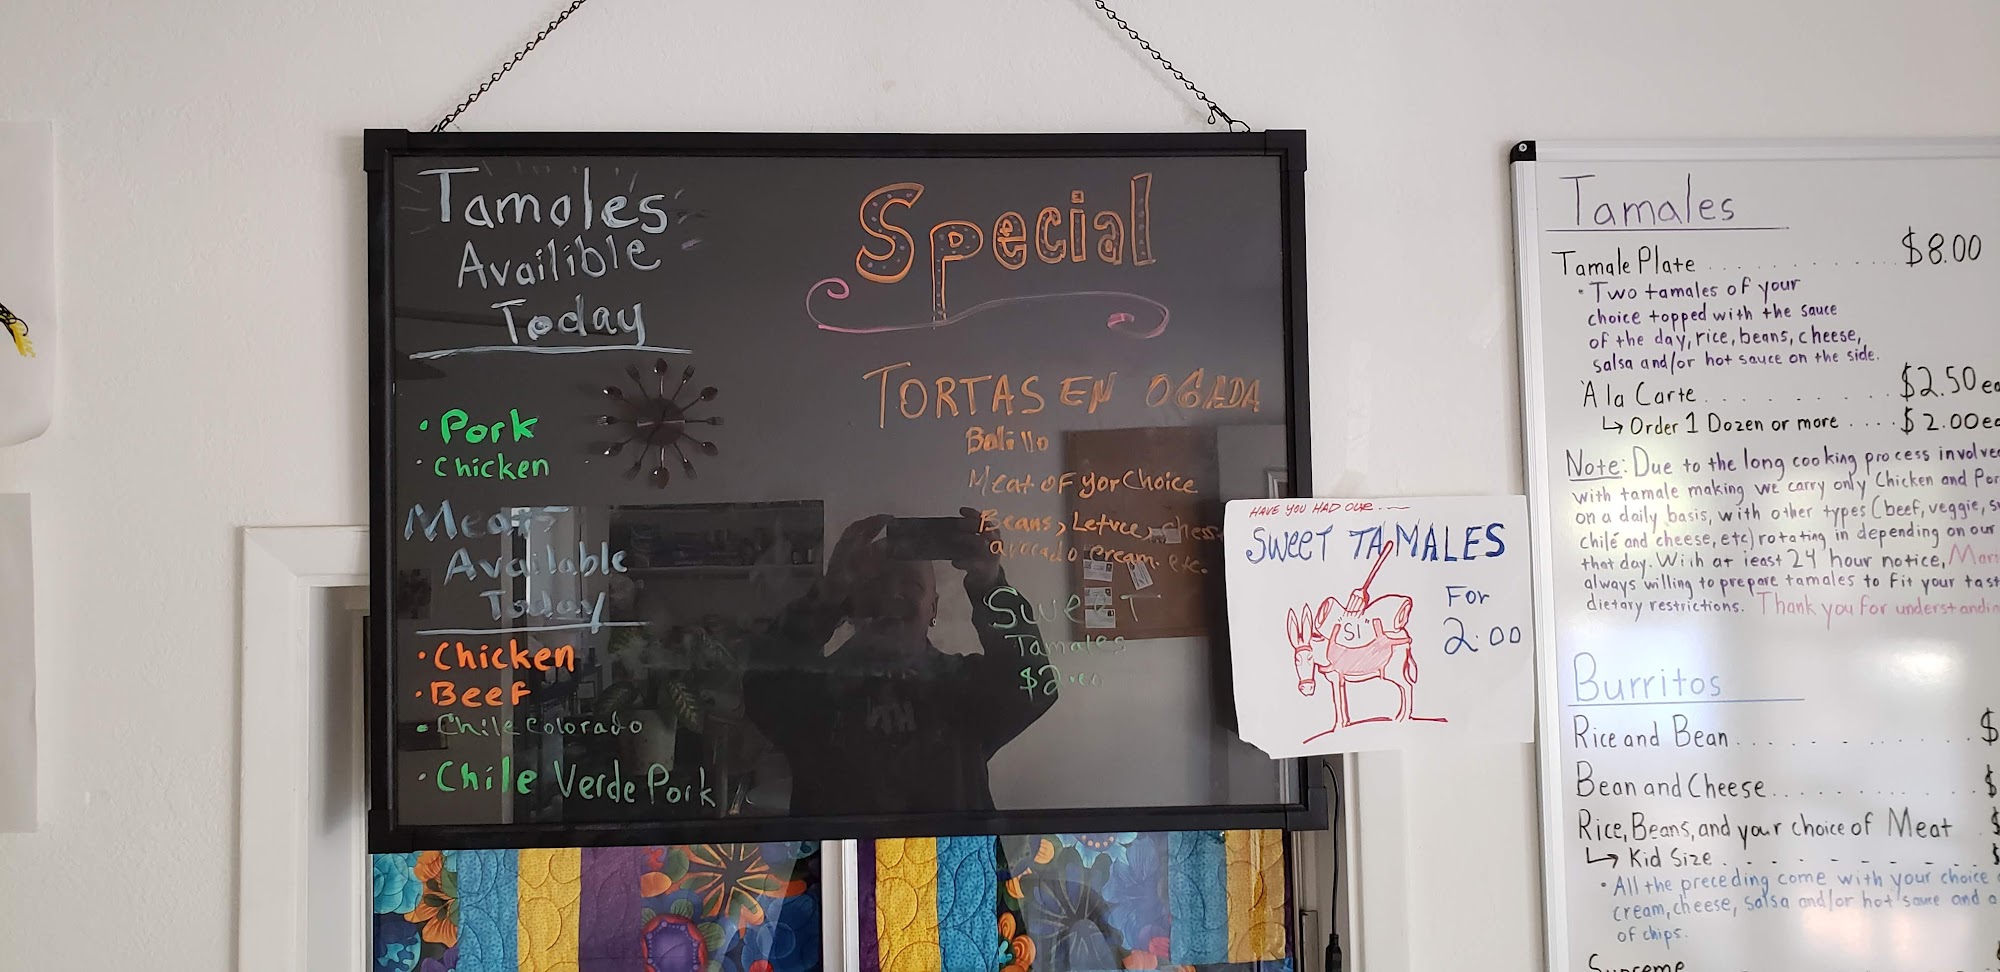 Tamales
Availible
Today
• Pork
• Chicken
Meats
Available
Today
• Chicken
• Beef
• Chile Colorado
• Chile Verde Pork
Special
TORTAS EN OGADA
Bolillo
Meat OF yor Choice
Beans, Letuce, chess
avocado cream. etc.
Sweet
Tamales
$2.00
HAVE YOU HAD OUR...
SWEET TAMALES
FOR
2.00
"SI"
Tamales
Tamale Plate ........... $8.00
• Two tamales of your
choice topped with the sauce
of the day, rice, beans, cheese,
salsa and/or hot sauce on the side.
A la Carte ......... $2.50 ea
↳ Order 1 Dozen or more .... $2.00 ea
Note: Due to the long cooking process involve
with tamale making we carry only Chicken and Por
on a daily basis, with other types (beef, veggie, s
chilé and cheese, etc) rotating in depending on our
that day. With at least 24 hour notice, Mar
always willing to prepare tamales to fit your tast
dietary restrictions. Thank you for understandin
Burritos
Rice and Bean .......... $
Bean and Cheese .......... $
Rice, Beans, and your choice of Meat . $
↳ Kid Size .......... $
• All the preceding come with your choice
cream, cheese, salsa and/or hot sauce and a
of chips.
Supreme